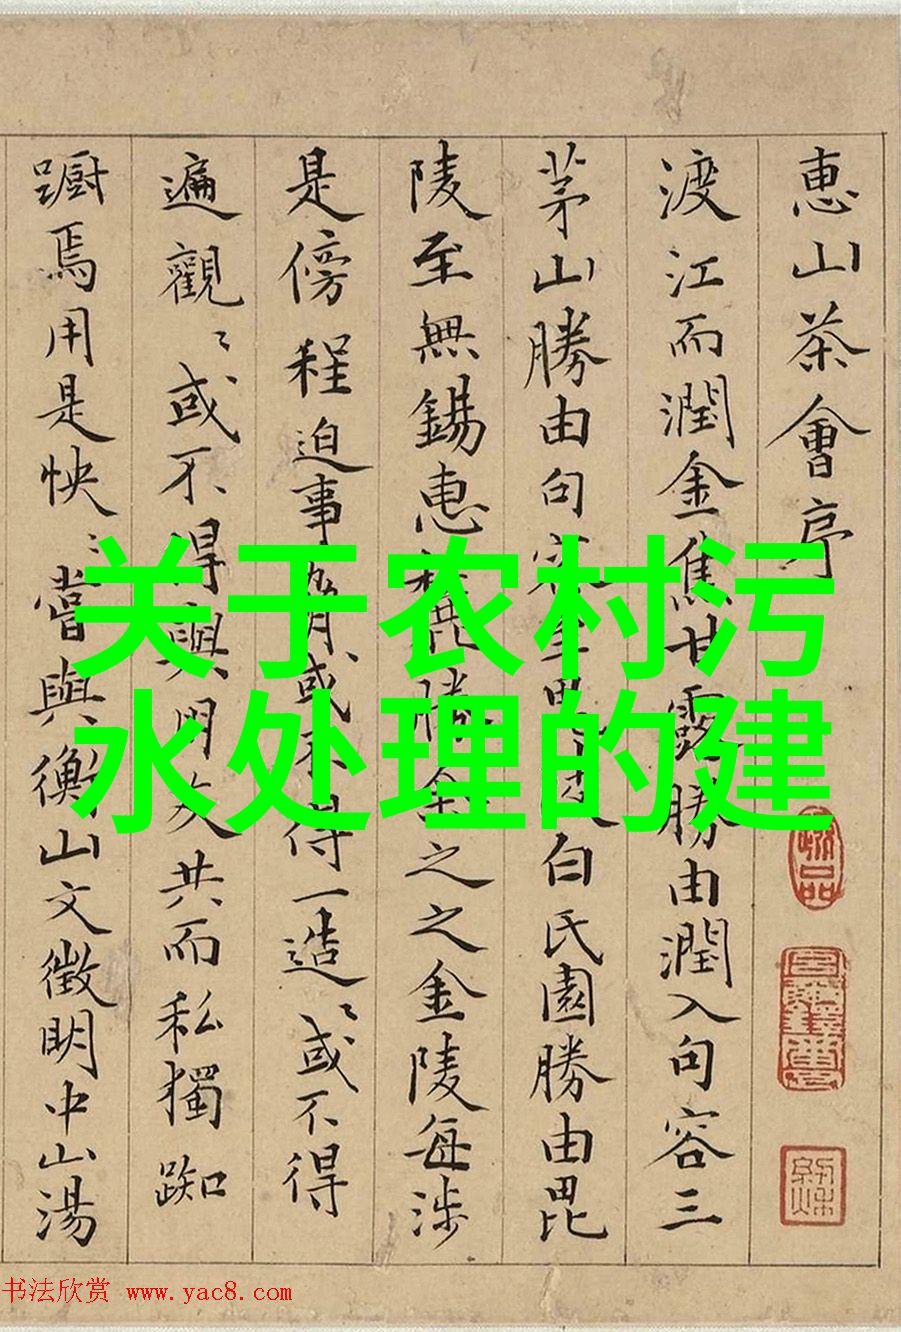 惠山茶會序
渡江而潤金焦甘露勝由潤入句容三
茅山勝由句容至毘陵白氏園勝由毘
陵至無錫惠勝全之之金陵每涉
是傍程迫事或不得一造〻或不得
遍觀〻或不得與朋友共而私獨踟
蹰焉用是怏〻嘗與衡山文徵明中山湯
关于农村污
水处理的建
书法欣赏 www.yac8.com